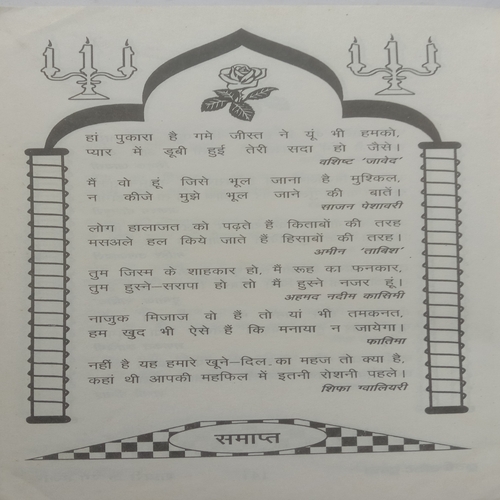 हां पुकारा है गमे जीस्त ने यूं भी हमको,
प्यार में डूबी हुई तेरी सदा हो जैसे।
वशिष्ट 'जावेद'
मैं वो हूं जिसे भूल जाना है मुश्किल,
न कीजे मुझे भूल जाने की बातें।
साजन पेशावरी
लोग हालाजत को पढ़ते हैं किताबों की तरह
मसअले हल किये जाते हैं हिसाबों की तरह।
अमीन 'ताबिश'
तुम जिस्म के शाहकार हो, मैं रूह का फनकार,
तुम हुस्ने-सरापा हो तो मैं हुस्ने नजर हूं।
अहमद नदीम कासिमी
नाजुक मिजाज वो हैं तो यां भी तमकनत,
हम खुद भी ऐसे हैं कि मनाया न जायेगा।
फातिमा
नहीं है यह हमारे खूने-दिल का महज तो क्या है,
कहां थी आपकी महफिल में इतनी रोशनी पहले।
शिफा ग्वालियरी
समाप्त